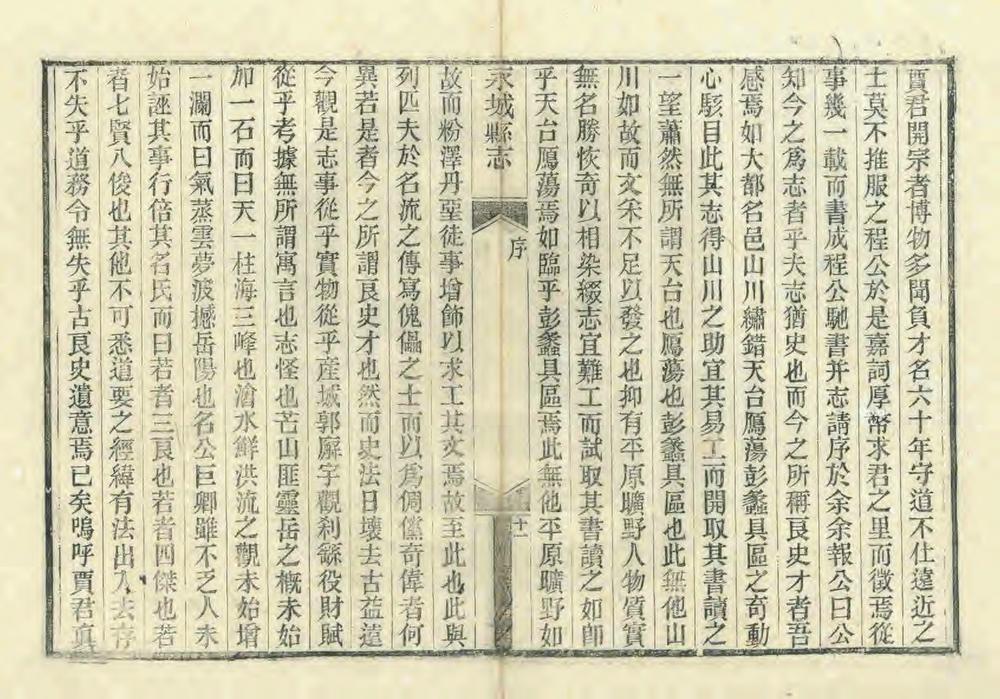 賈君開宗者博物多聞負才名六十年守道不仕遠近之
士莫不推服之程公於是嘉詞厚幣求君之里而徵焉從
事幾一載而書成程公馳書并志請序於余余報公曰公
知今之爲志者乎夫志猶史也而今之所稱良史才者吾
感焉如大都名邑山川繡錯天台鴈蕩彭蠡具區之奇動
心駭目此其志得山川之助宜其易工而開取其書讀之
一望蕭然無所謂天台也鴈蕩也彭蠡具區也此無他山
川如故而文采不足以發之也抑有平原曠野人物質實
無名勝恢奇以相染綴志宜難工而試取其書讀之如卽
乎天台鴈蕩焉如臨乎彭蠡具區焉此無他平原曠野如
永城縣志
序
十一
故而粉澤丹堊徒事增飾以求工其文焉故至此也此與
列匹夫於名流之傳寫傀儡之士而以爲倜儻奇偉者何
異若是者今之所謂良史才也然而史法日壞去古益遠
今觀是志事從乎實物從乎產城郭廨宇觀刹繇役財賦
從乎考據無所謂寓言也志怪也芒山匪靈岳之概未始
加一石而曰天一柱海三峰也澮水鮮洪流之觀未始增
一瀾而曰氣蒸雲夢波撼岳陽也名公巨卿雖不乏人未
始誣其事行倍其名氏而曰若者三良也若者四傑也若
者七賢八俊也其他不可悉道要之經緯有法出入去存
不失乎道務令無失乎古良史遺意焉已矣嗚呼賈君眞